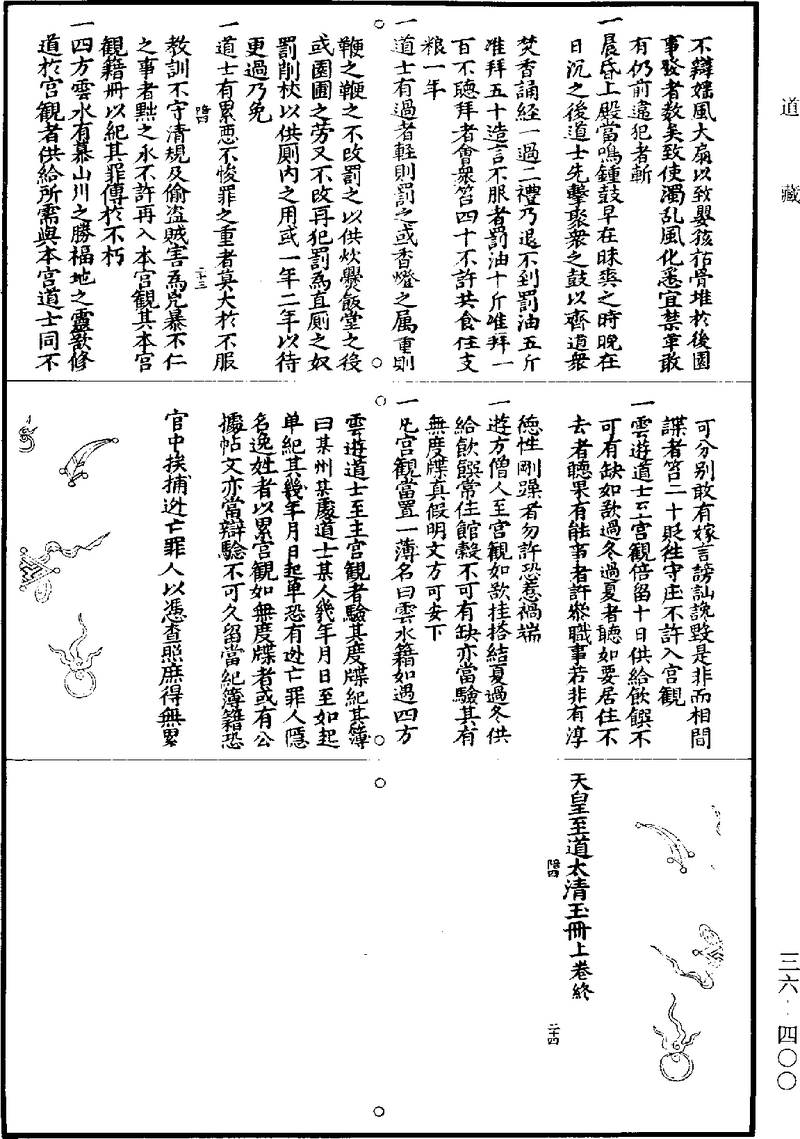 道藏
不辯婬風大扇以致嬰孩枯骨堆於後園
事發者數矣致使濁乱風化悉宜禁革敢
有仍前違犯者斬
一晨昏上殿當鳴鍾鼓早在昧爽之時晚在
日沉之後道士先擊聚衆之鼓以齊道衆
焚香誦經一過二禮乃退不到罰油五斤
准拜五十造言不服者罰油十斤准拜一
百不聽拜者會衆笞四十不許共食住支
粮一年
一道士有過者輕則罰之或香燈之属重則
鞭之鞭之不改罰之以供炊爨飯堂之後
或園圃之劳又不改再犯罰為直厠之奴
罰削杖以供厠内之用或一年二年以待
更過乃免
一道士有累惡不悛罪之重者莫大於不服
陪四
二十三
教訓不守清規及偷盗賊害為兇暴不仁
之事者黜之永不許再入本宫觀其本宫
觀籍冊以紀其罪傳於不朽
一四方雲水有慕山川之勝福地之靈欲修
道於宫觀者供給所需與本宫道士同不
可分别敢有嫁言謗訕讒毀是非而相間
諜者笞二十貶徃守庄不許入宫觀
一雲遊道士至宫觀倍留十日供給飲饌不
可有缺如欲過冬過夏者聽如要居住不
去者聽果有能事者許叅職事若非有淳
德性剛躁者勿許恐惹禍端
一遊方僧人至宫觀如欲挂搭結夏過冬供
給飲饌常住館穀不可有缺亦當驗其有
無度牒真假明文方可安下
一凡宫觀當置一薄名曰雲水籍如遇四方
雲遊道士至主宫觀者驗其度牒紀其簿
曰某州某處道士某人幾年月日至如起
单紀其幾年月日起单恐有迯亡罪人隱
名逸姓者以累宫觀如無度牒者或有公
據帖文亦當辯驗不可久留當紀簿籍恐
官中挨捕迯亡罪人以憑查照庶得無累
天皇至道太清玉冊上卷終
陪四
二十四
三六·四〇〇